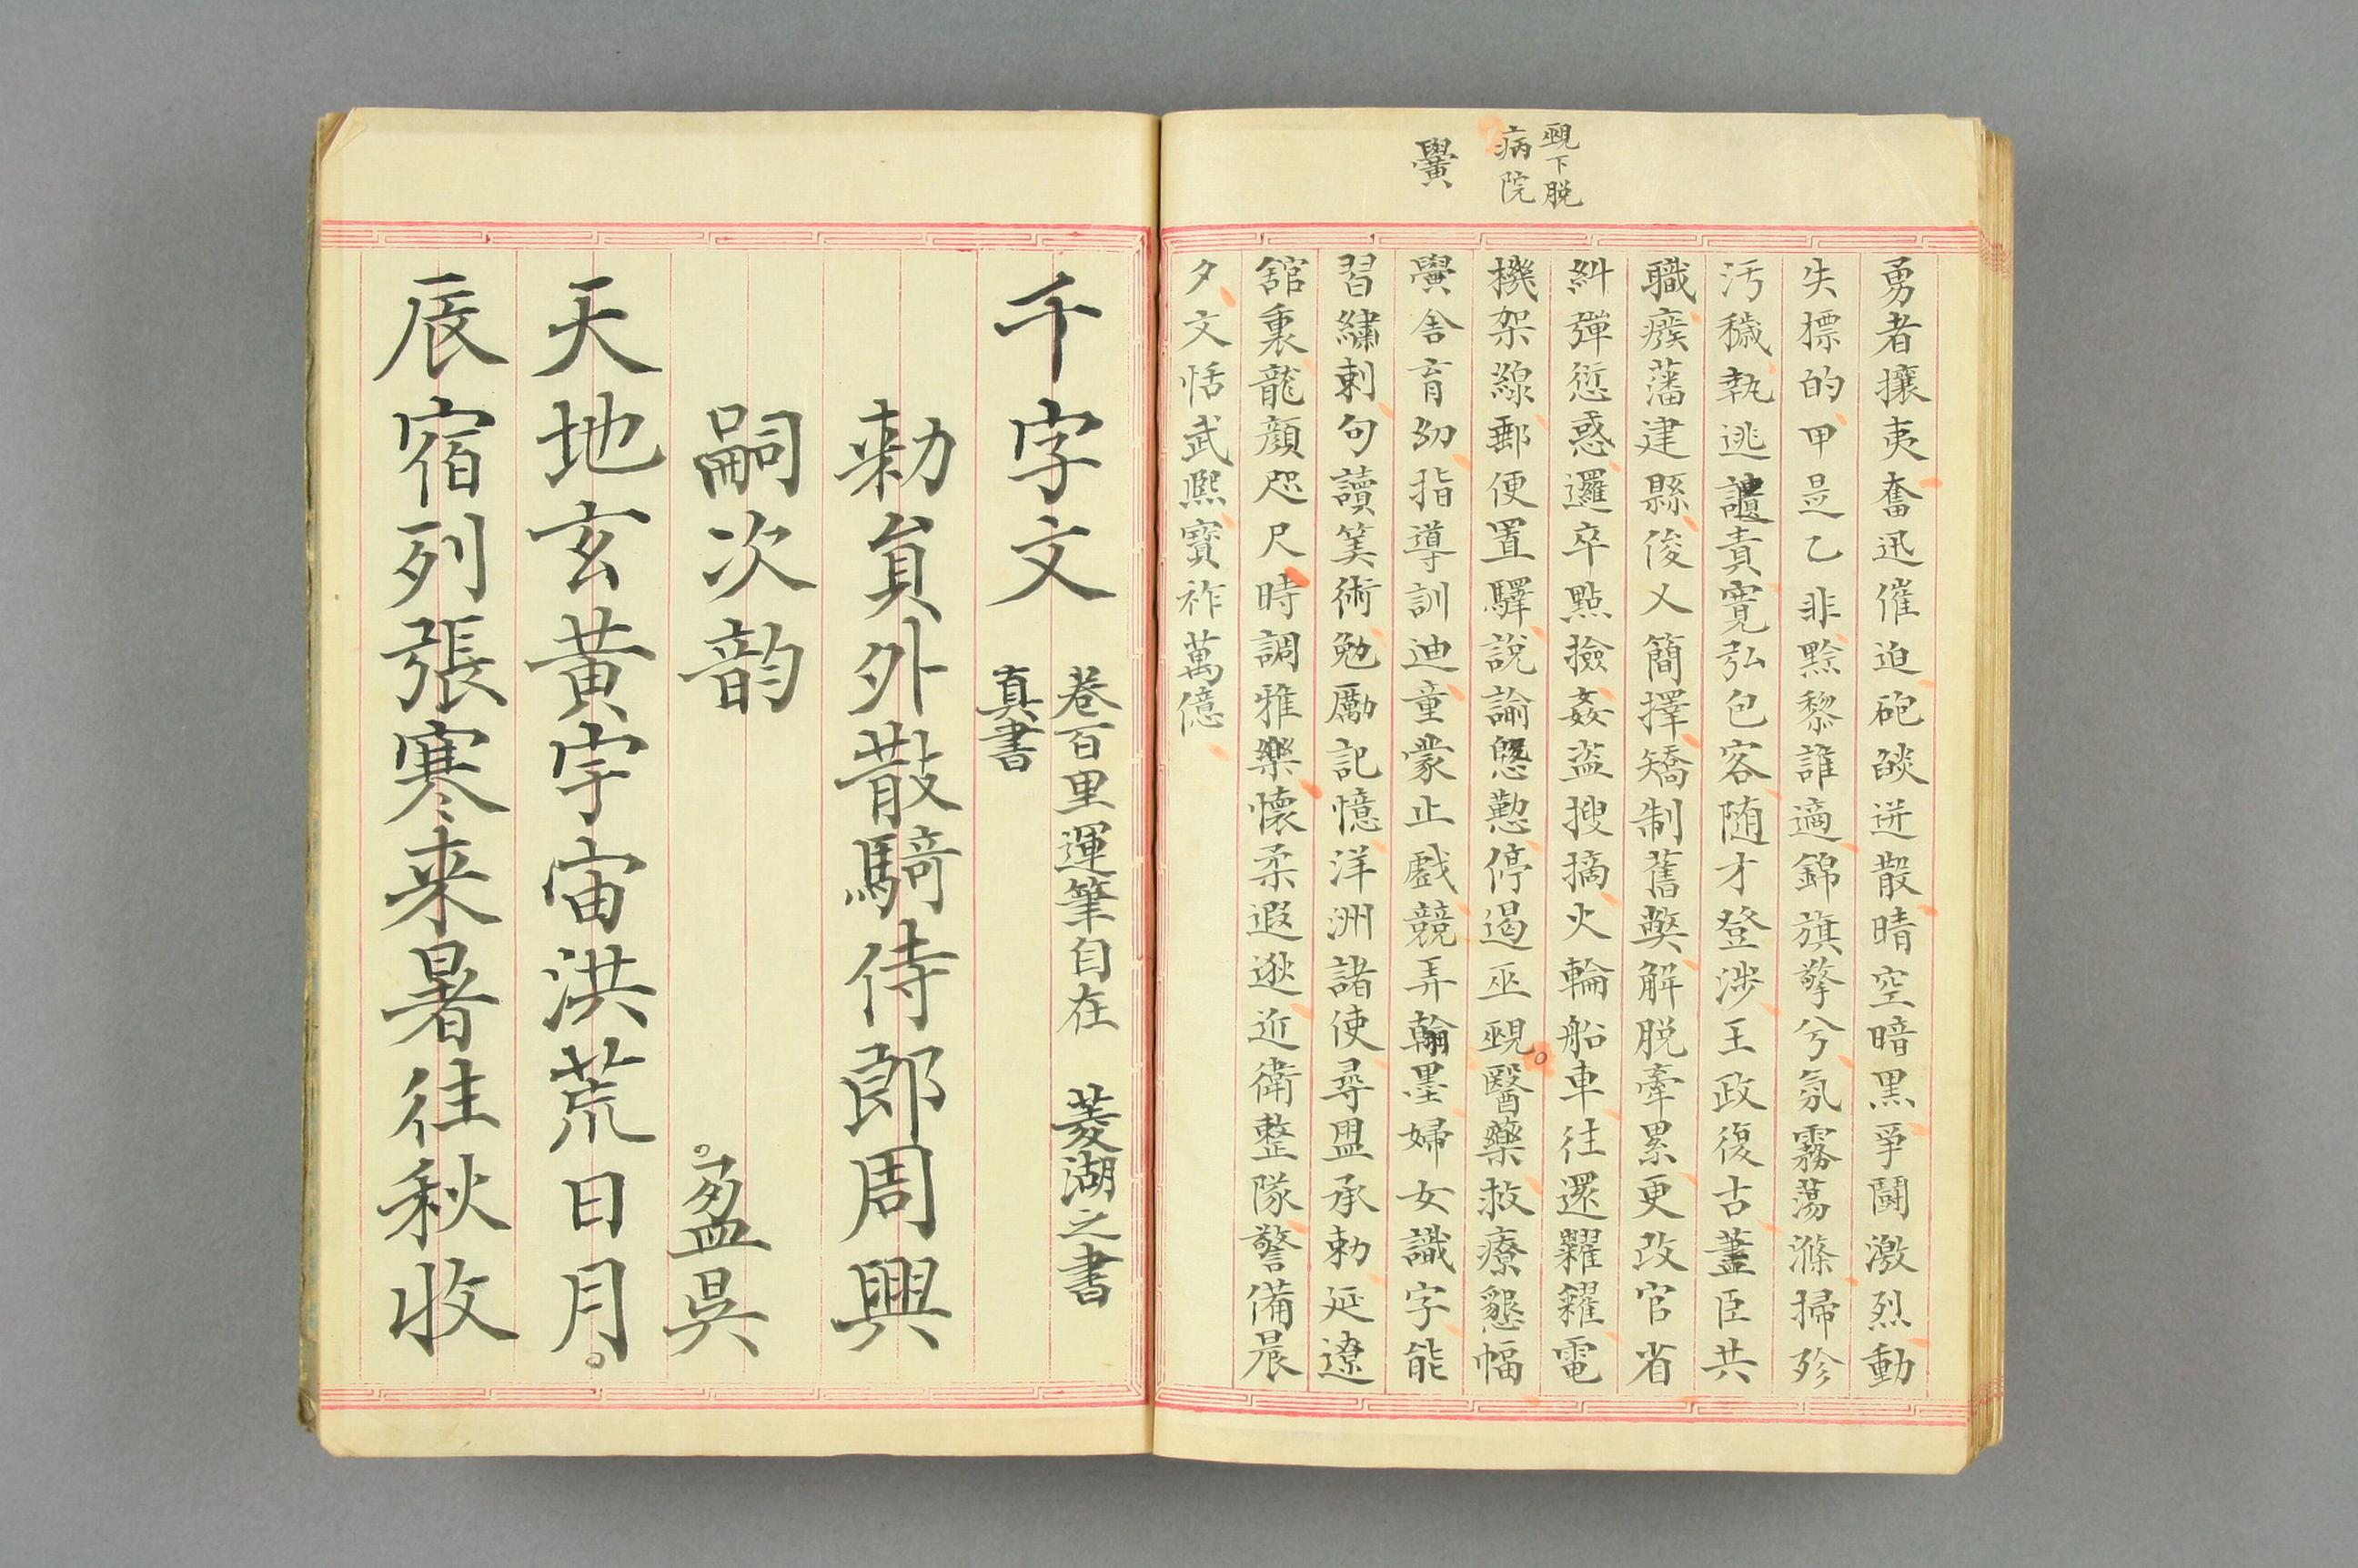 覡下脱
病院
黌
勇者攘夷奮迅催迫砲燄迸散晴空暗黒爭鬪激烈動
失標的甲是乙非黥黎誰適錦旗擎兮氛霧蕩滌掃殄
汚穢執逃譴責寛弘包容随才登渉王政復古藎臣共
職癈藩建縣俊乂簡擇矯制舊獘解脱牽累更改官省
糾彈愆惑邏卒點撿姦盗搜摘火輪船車往還糶糴電
機架線郵便置驛説諭慇懃停遏巫覡。醫藥救療懇幅
黌舎育幼指導訓迪童蒙止戯競弄翰墨婦女識字能
習繍刺句讀筭術勉勵記憶洋洲諸使尋盟承勅延遼
舘裏龍顔咫尺時調雅樂懐柔遐逖近衛整隊警備晨
夕文恬武熈寳祚萬億
千字文 巻百里運筆自在 菱湖之書
真書
勅貟外散騎侍郎周興
嗣次韵 。盈昃
天地玄黄宇宙洪荒日月。
辰宿列張寒来暑往秋收